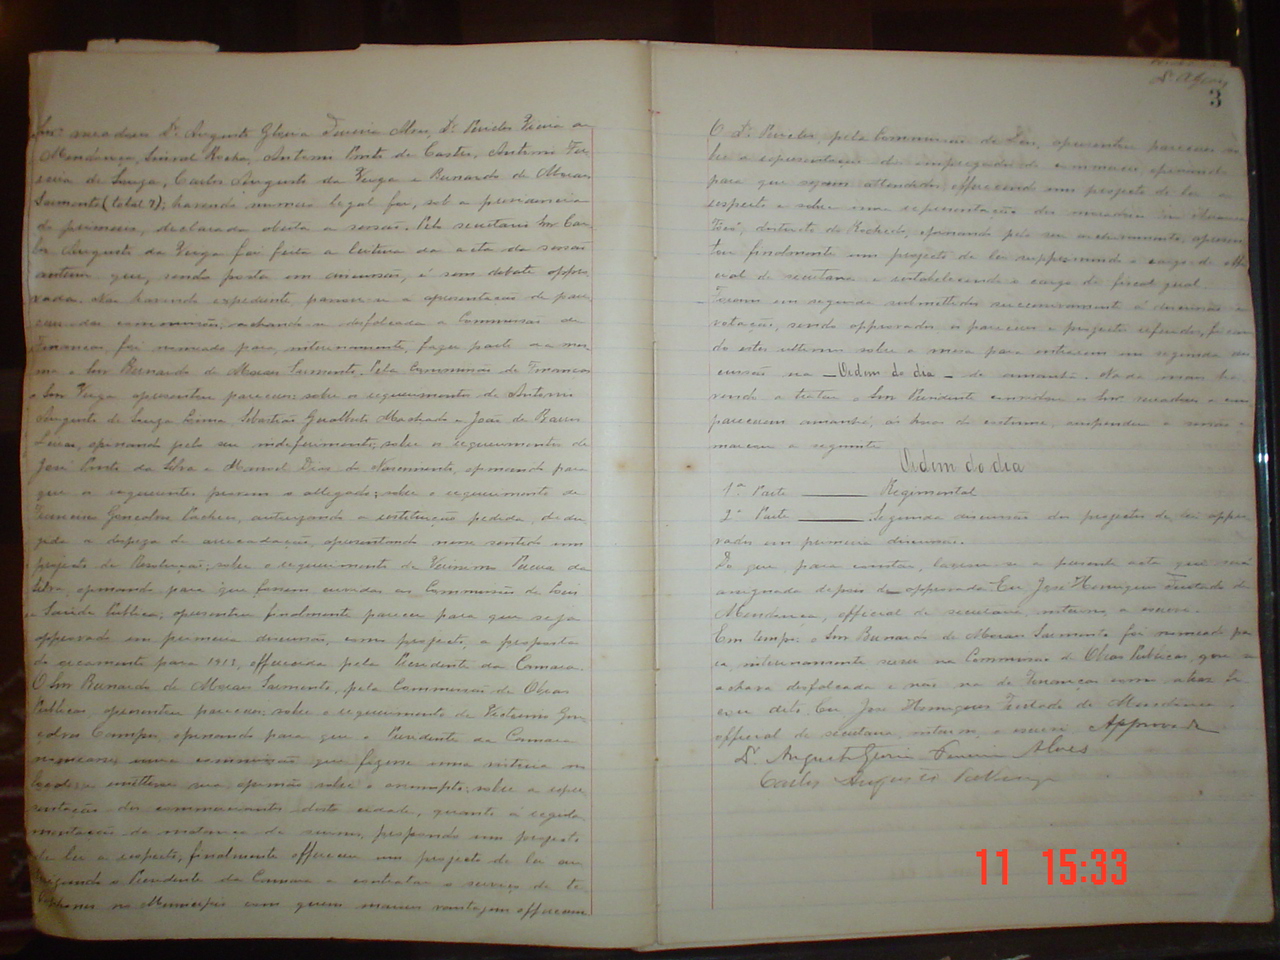 Snr. vereadores Dr. Augusto Gloria Ferreira Alves, Dr. Pericles Vieira de
Mendonça, Sinval Rocha, Antonio Pinto de Castro, Antonio Fer-
reira de Souza, Carlos Augusto da Veiga e Bernardo de Moraes
Sarmento (total 7); havendo numero legal foi, sob a presidencia
do primeiro, declarada aberta a sessão. Pelo secretario Snr Car-
los Augusto da Veiga foi feita a leitura da acta da sessão
anterior que, sendo posta em discussão, é sem debate appro-
vada. Não havendo expediente passou-se a apresentação de pare-
ceres das commissões; achando-se desfalcada a Commissão de
Finanças, foi nomeado para, interinamente, fazer parte da mes-
ma o Snr Bernardo de Moraes Sarmento. Pela Commissão de Finanças
o Snr Veiga apresentou pareceres: sobre os requerimentos de Antonio
Augusto de Souza Lima, Sebastião Gualberto Machado e João de Barros
opinando pelo seu indeferimento; sobre os requerimentos de
José Pinto da Silva e Manoel Dias do Nascimento, opinando para
que os requerentes provem o allegado; sobre o requerimento de
Francisco Gonçalves Pacheco, autorizando a restituição pedida, dedu-
zida a despeza de arrecadação, apresentando nesse sentido um
projecto de Resolução; sobre o requerimento de Pereira da
Silva, opinando para que fossem ouvidas as Commissões de Leis
e Saúde Publica; apresentou finalmente parecer para que seja
approvado em primeira discussão, como projecto, a proposta
do orçamento para 1913, offerecida pelo Presidente da Camara.
O Snr Bernardo de Moraes Sarmento, pela Commissão de Obras
Publicas, apresentou pareceres: sobre o requerimento de Victorino Gon-
çalves Campos, opinando para que o Presidente da Camara
nomeasse uma commissão que fizesse uma vistoria no
local e emittisse sua opinião sobre o assumpto; sobre a repre-
sentação dos commerciantes desta cidade, quanto á regula-
mentação da matança de suinos, propondo um projecto
de lei a respeito; finalmente offereceu um projecto de lei au-
torizando o Presidente da Camara a contratar o serviço de te-
lephones no Municipio com quem maiores vantagens offerecer.
Dr. A Gloria
3
O Dr. Pericles, pela Commissão de Leis, apresentou pareceres so-
bre a representação dos empregados do commercio, opinando
para que sejam attendidos, offerecendo um projecto de lei a
respeito e sobre uma representação dos moradores in
districto do Rochedo, opinando pelo seu archivamento, apresen-
tou finalmente um projecto de lei supprimindo o cargo de offi-
cial de secretaria e restabelecendo o cargo de fiscal geral.
Foram em seguida submettidos successivamente á discussão e
votação, sendo approvados os pareceres e projectos referidos, fican-
do estes ultimos sobre a mesa para entrarem em segunda dis-
cussão na – Ordem do dia – de amanhã. Nada mais ha-
vendo a tratar o Snr Presidente convidou os Snr vereadores a com-
parecerem amanhã, ás horas do costume, suspendeu a sessão e
marcou a seguinte
Ordem do dia
1ª Parte ——— Regimental
2ª Parte ——— Segunda discussão dos projectos de lei appro-
vados em primeira discussão.
Do que, para constar, lavrou-se a presente acta que será
assignada depois de approvada. Eu José Henriques Furtado de
Mendonça, official de secretaria, interino a escrevi.
Em tempo: o Snr Bernardo de Moraes Sarmento foi nomeado pa-
ra, interinamente servir na Commissão de Obras Publicas, que se
achava desfalcada e não na de Finanças como atraz
dito. Eu José Henriques Furtado de Mendonça
official de secretaria, interino, o escrevi. Approvada
Dr. Augusto Gloria Ferreira Alves
Carlos Augusto da Veiga
11 15:33